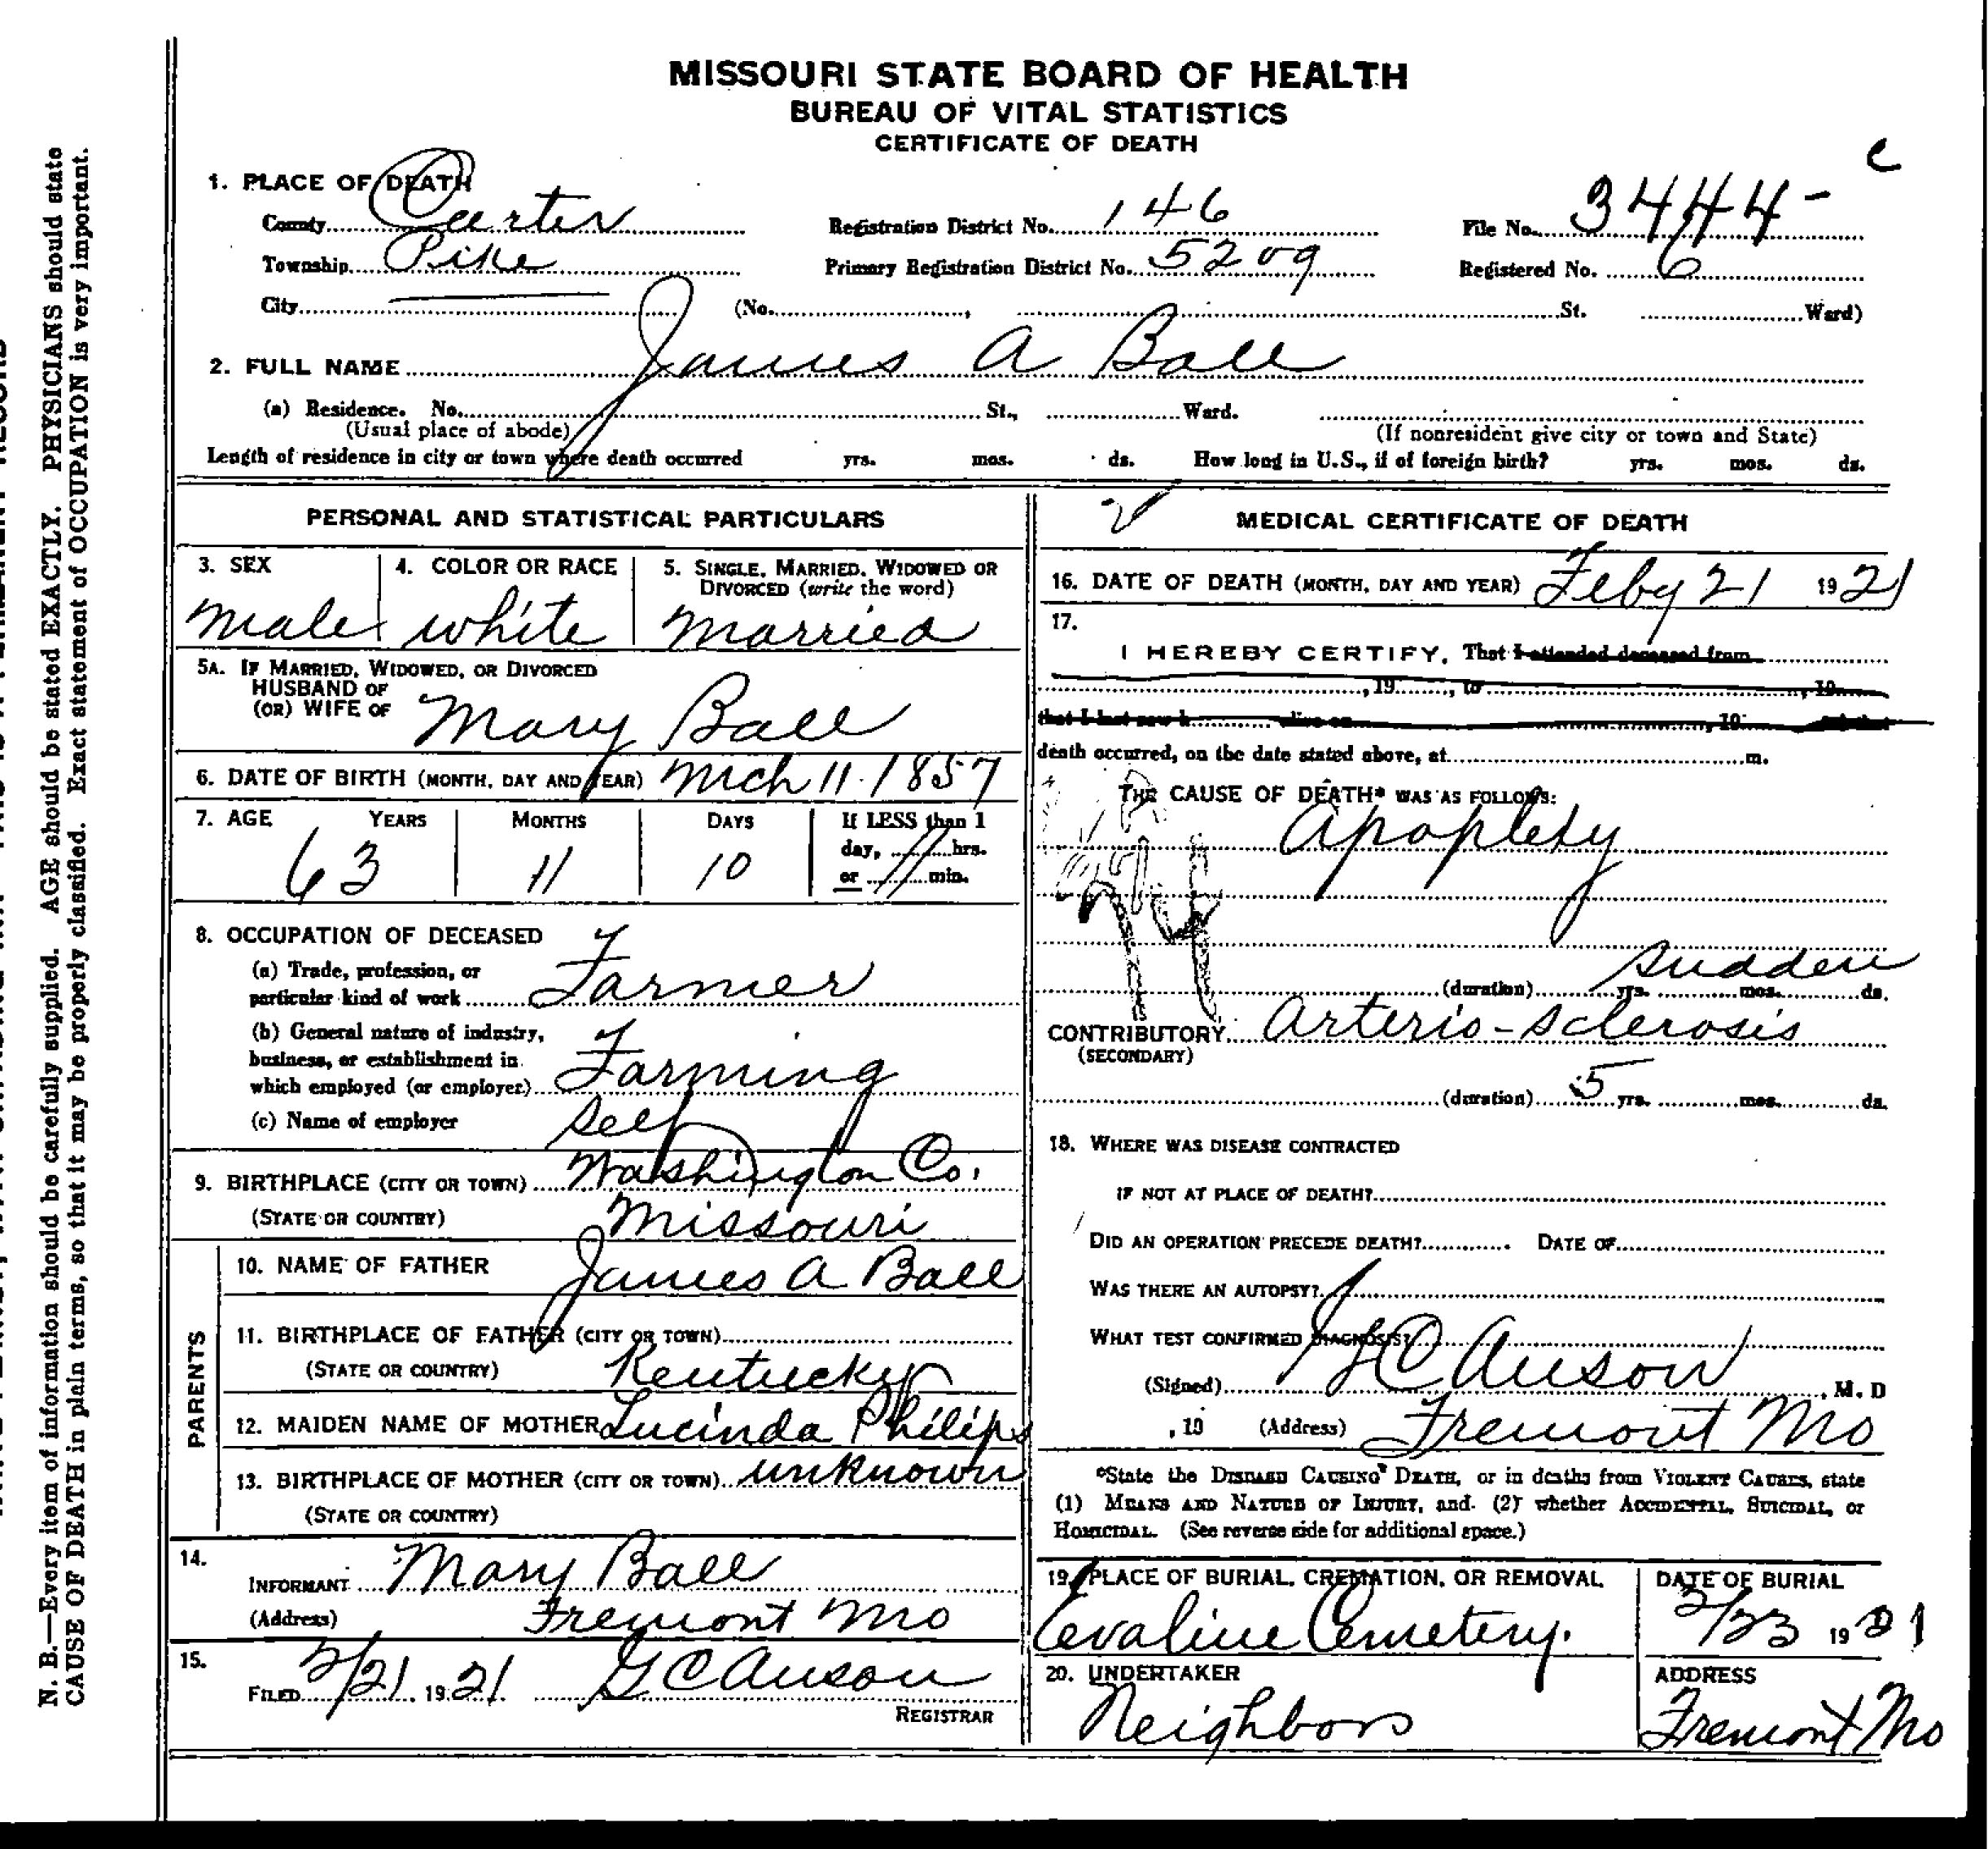 MISSOURI STATE BOARD OF HEALTH
BUREAU OF VITAL STATISTICS
CERTIFICATE OF DEATH
c
1. PLACE OF DEATH
County Carter Registration District No. 146 File No. 3444-
Township Pike Primary Registration District No. 5209 Registered No. 6
City (No. , St. Ward)
2. FULL NAME James A Ball
(a) Residence. No. St., Ward.
(Usual place of abode) (If nonresident give city or town and State)
Length of residence in city or town where death occurred yrs. mos. ds. How long in U.S., if of foreign birth? yrs. mos. ds.
PERSONAL AND STATISTICAL PARTICULARS
3. SEX 4. COLOR OR RACE 5. SINGLE, MARRIED, WIDOWED OR
DIVORCED (write the word)
male white married
5A. IF MARRIED, WIDOWED, OR DIVORCED
HUSBAND OF
(OR) WIFE OF Mary Ball
6. DATE OF BIRTH (MONTH, DAY AND YEAR) Mch 11 1857
7. AGE YEARS MONTHS DAYS If LESS than 1
day, hrs.
or min.
63 11 10
8. OCCUPATION OF DECEASED
(a) Trade, profession, or
particular kind of work Farmer
(b) General nature of industry,
business, or establishment in
which employed (or employer) Farming
(c) Name of employer Self
9. BIRTHPLACE (CITY OR TOWN) Washington Co.
(STATE OR COUNTRY) Missouri
PARENTS
10. NAME OF FATHER James A Ball
11. BIRTHPLACE OF FATHER (CITY OR TOWN)
(STATE OR COUNTRY) Kentucky
12. MAIDEN NAME OF MOTHER Lucinda Philips
13. BIRTHPLACE OF MOTHER (CITY OR TOWN) unknown
(STATE OR COUNTRY)
14.
INFORMANT Mary Ball
(Address) Fremont Mo
15.
FILED 2/21, 1921 G C Anson
REGISTRAR
MEDICAL CERTIFICATE OF DEATH
16. DATE OF DEATH (MONTH, DAY AND YEAR) Feby 21 1921
17.
I HEREBY CERTIFY, That I attended deceased from
, 19 , to , 19
that I last saw h alive on , 19 and that
death occurred, on the date stated above, at m.
THE CAUSE OF DEATH* WAS AS FOLLOWS:
Apoplexy
74
sudden
(duration) yrs. mos. ds.
CONTRIBUTORY Arterio-sclerosis
(SECONDARY)
(duration) 5 yrs. mos. ds.
18. WHERE WAS DISEASE CONTRACTED
IF NOT AT PLACE OF DEATH?
DID AN OPERATION PRECEDE DEATH? DATE OF
WAS THERE AN AUTOPSY?
WHAT TEST CONFIRMED DIAGNOSIS?
(Signed) G C Anson, M. D
, 19 (Address) Fremont Mo
*State the DISEASE CAUSING DEATH, or in deaths from VIOLENT CAUSES, state
(1) MEANS AND NATURE OF INJURY, and (2) whether ACCIDENTAL, SUICIDAL, or
HOMICIDAL. (See reverse side for additional space.)
19. PLACE OF BURIAL, CREMATION, OR REMOVAL DATE OF BURIAL
Evaline Cemetery. 2/23 1921
20. UNDERTAKER ADDRESS
Neighbors Fremont Mo
N. B.—Every item of information should be carefully supplied. AGE should be stated EXACTLY. PHYSICIANS should state
CAUSE OF DEATH in plain terms, so that it may be properly classified. Exact statement of OCCUPATION is very important.